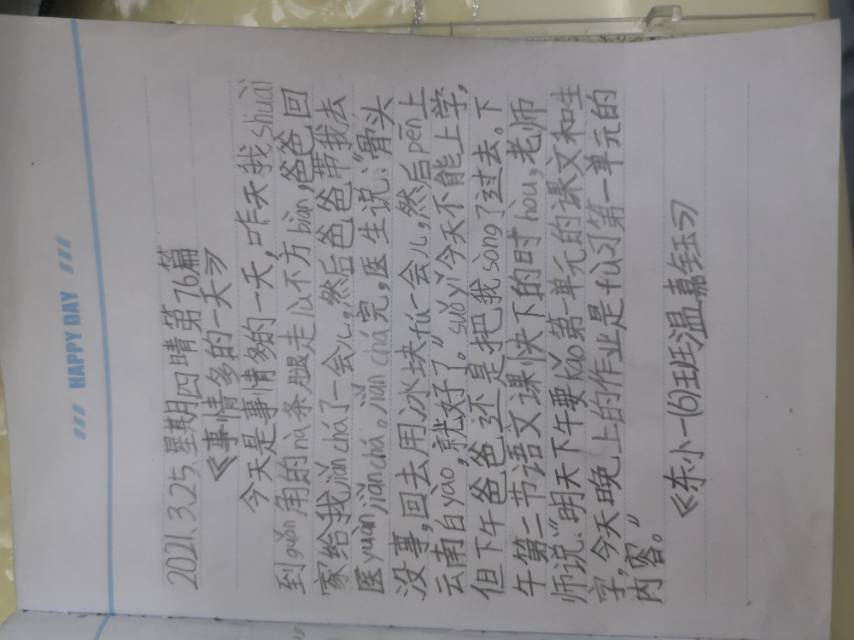 HAPPY DAY
2021.3.25.星期四晴第76篇
《事情多的一天》
今天是事情多的一天,昨天我shuāi
到guǎn角的nà条腿走lù不方biàn,爸爸回
家给我jiǎn chá了一会儿,然后爸爸带我去
医yuàn jiǎn chá。jiǎn chá完,医生说:“骨头
没事,回去用冰块fū一会儿,然后pēn上
云南白yào,就好了。”suǒ yǐ今天不能上学,
但下午爸爸还是把我sòng了过去。下
午第二节语文课快下的时hòu,老师
师说:“明天下午要kǎo第一单元的课文和生
字,今天晚上的作业是fù习第一单元的
内容。”
《东小一(6)班温嘉钰》